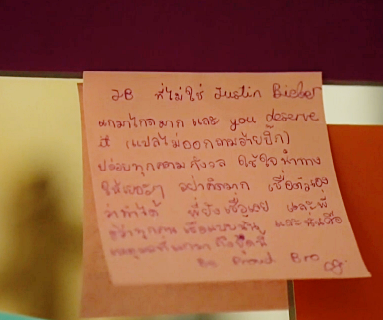 JB ที่ไม่ใช่ Justin Bieber
มาไกลมาก และ you deserve
it (แปลไม่ออกถามอ้ายปิ๊ก)
ปล่อยทุกความกังวล ใช้ใจนำทาง
ให้เยอะๆ อย่าคิดมาก เชื่อตัวเอง
ว่าทำได้ พี่ยังเชื่อเลย และพี่
ว่าทุกคน เชื่อแบบนั้น และนั่นคือ
เหตุผลที่ มาถึงจุดนี้
Be Proud Bro